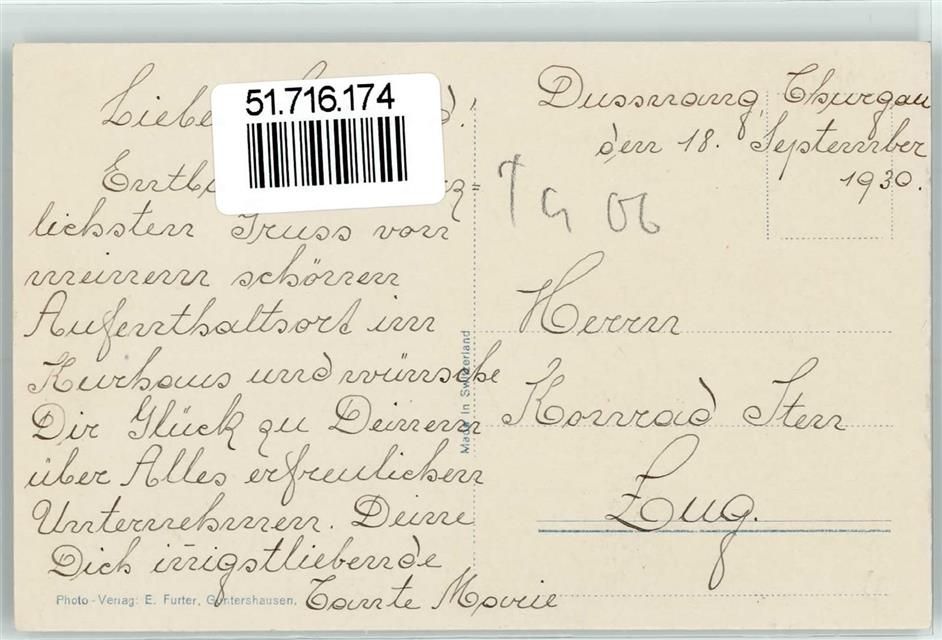 51.716.174
Liebe
lichsten Gruss von
meinem schönen
Aufenthaltsort im
Kurhaus und wünsche
Dir Glück zu Deinem
über Alles erfreulichen
Unternehmen. Deine
Dich innigstliebende
Tante Marie
Photo-Verlag: E. Furter, Guntershausen.
Made in Switzerland
Dussnang, Thurgau
den 18. September
1930.
Herrn
Konrad Stern
Zug.